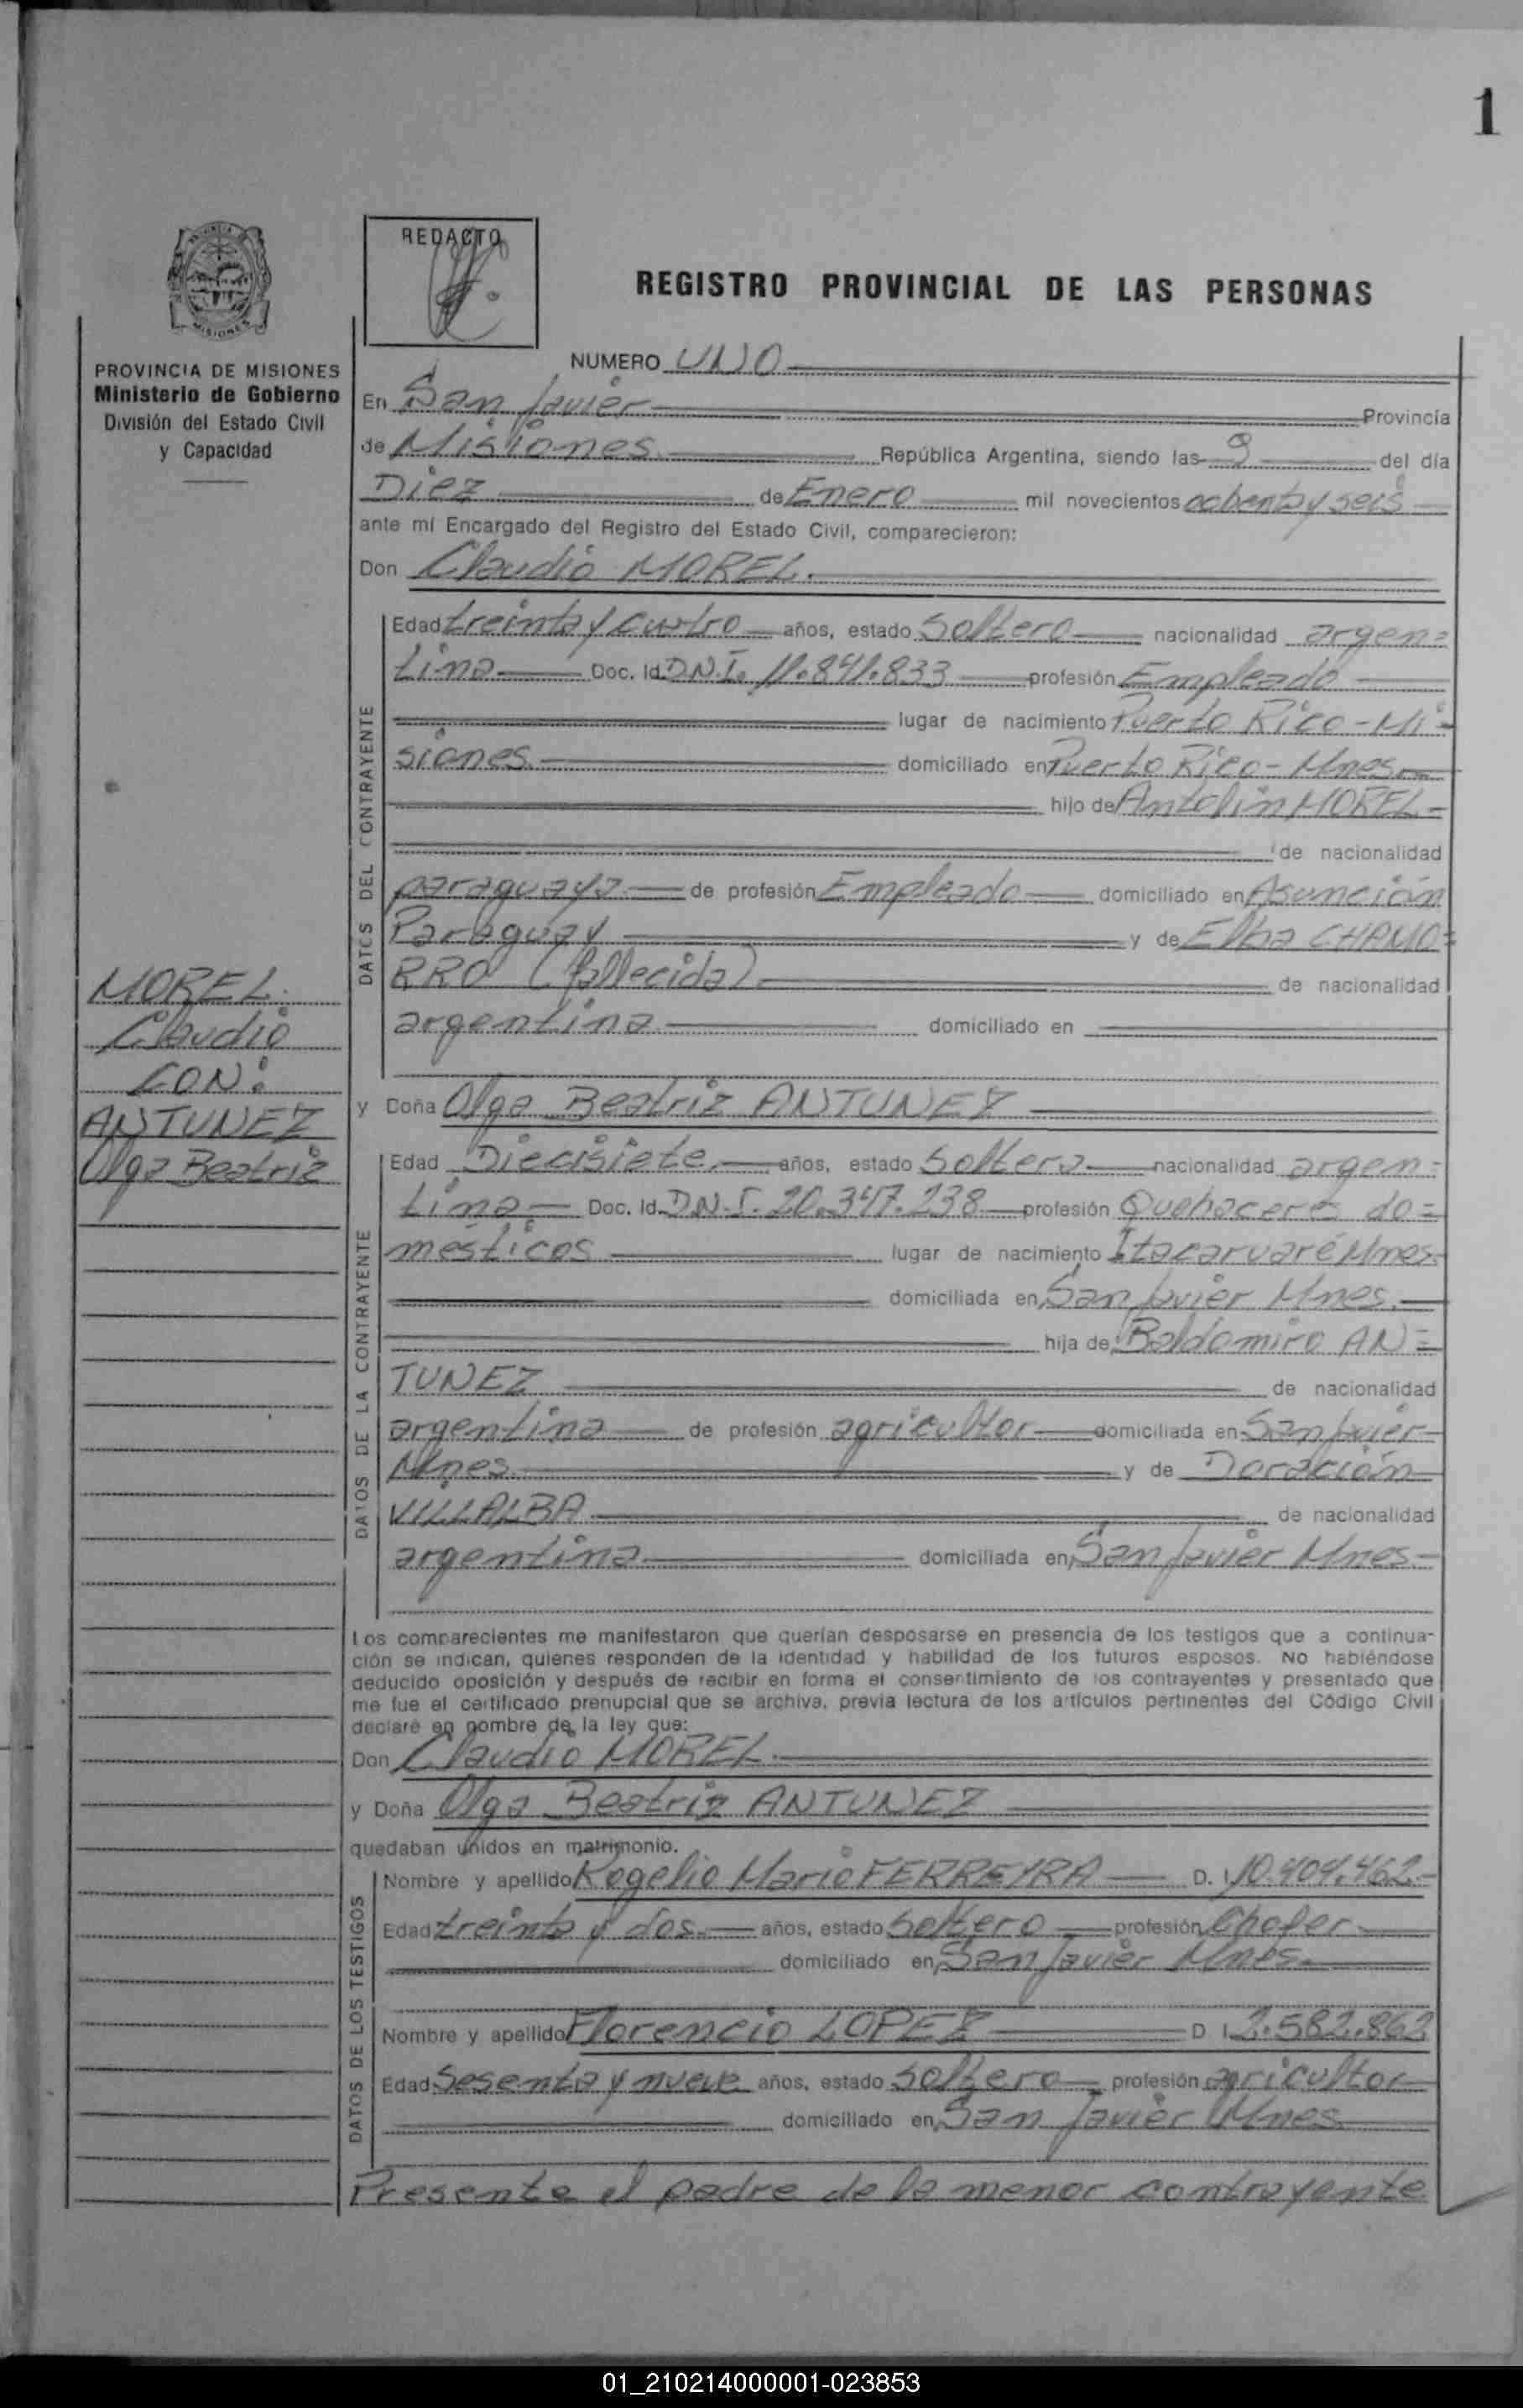 1
REDACTO
REGISTRO PROVINCIAL DE LAS PERSONAS
MISIONES
PROVINCIA DE MISIONES
Ministerio de Gobierno
División del Estado Civil
y Capacidad
NUMERO UNO
En San Javier Provincia
de Misiones República Argentina, siendo las 9 del día
Diez de Enero mil novecientos ochenta y seis
ante mí Encargado del Registro del Estado Civil, comparecieron:
Don Claudio MOREL.
DATOS DEL CONTRAYENTE
Edad treinta y cuatro años, estado Soltero nacionalidad argen=
tina Doc. Id. D.N.I. 11.841.833 profesión Empleado
lugar de nacimiento Puerto Rico - Mi=
siones. domiciliado en Puerto Rico - Mnes.
hijo de Antolin MOREL
de nacionalidad
paraguaya de profesión Empleado domiciliado en Asunción
Paraguay y de Elba CHAMO=
RRO (fallecida) de nacionalidad
argentina domiciliado en
MOREL
Claudio
CON:
ANTUNEZ
Olga Beatriz
y Doña Olga Beatriz ANTUNEZ
DATOS DE LA CONTRAYENTE
Edad Diecisiete años, estado Soltera nacionalidad argen=
tina Doc. Id. D.N.I. 20.347.238 profesión Quehaceres do=
mésticos lugar de nacimiento Itacaruaré Mnes.
domiciliada en San Javier Mnes.
hija de Baldomiro AN=
TUNEZ de nacionalidad
argentina de profesión agricultor domiciliada en San Javier
Mnes. y de Doración
VILLALBA de nacionalidad
argentina domiciliada en San Javier Mnes.
Los comparecientes me manifestaron que querían desposarse en presencia de los testigos que a continua-
ción se indican, quienes responden de la identidad y habilidad de los futuros esposos. No habiéndose
deducido oposición y después de recibir en forma el consentimiento de los contrayentes y presentado que
me fue el certificado prenupcial que se archiva, previa lectura de los artículos pertinentes del Código Civil
declaré en nombre de la ley que:
Don Claudio MOREL.
y Doña Olga Beatriz ANTUNEZ
quedaban unidos en matrimonio.
DATOS DE LOS TESTIGOS
Nombre y apellido Rogelio Mario FERREYRA D. I. 10.404.462
Edad treinta y dos. años, estado Soltero profesión Chofer
domiciliado en San Javier Mnes.
Nombre y apellido Florencio LOPEZ D I. 2.582.862
Edad Sesenta y nueve años, estado Soltero profesión agricultor
domiciliado en San Javier Mnes
Presente el padre de la menor contrayente
01_210214000001-023853